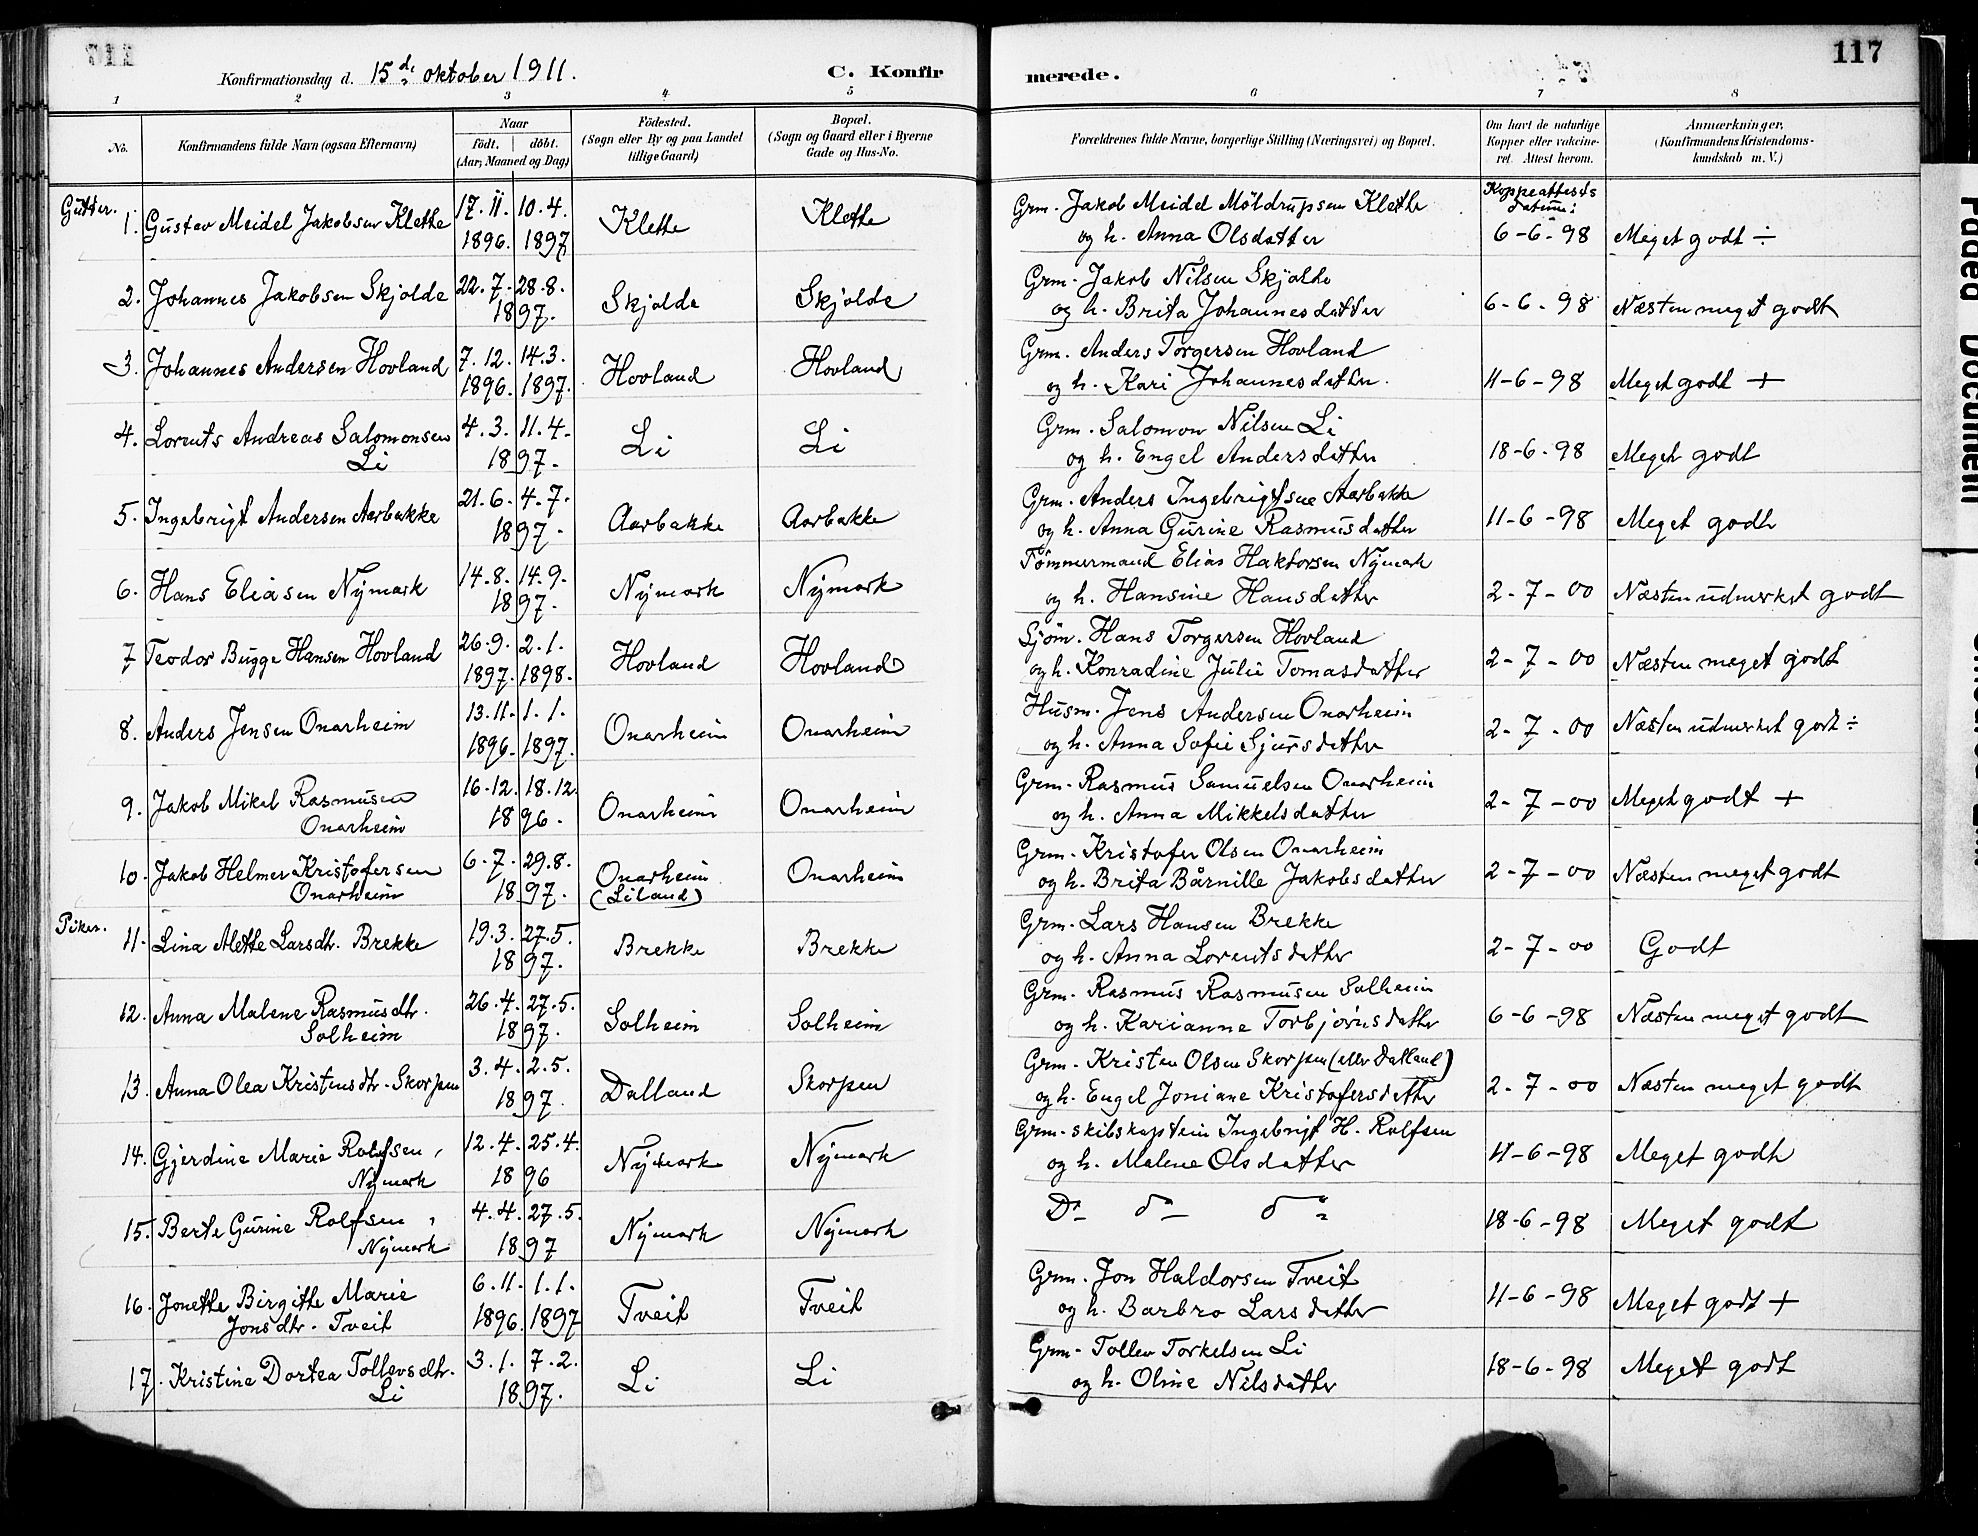 117
Konfirmationsdag d. 15de oktober 1911.
C. Konfirmerede.
1 2 3 4 5 6 7 8
No.
Konfirmandens fulde Navn (ogsaa Efternavn)
Naar
födt. döbt.
(Aar, Maaned og Dag)
Födested.
(Sogn eller By og paa Landet
tillige Gaard)
Bopæl.
(Sogn og Gaard eller i Byerne
Gade og Hus-No.
Forældrenes fulde Navne, borgerlige Stilling (Næringsvei) og Bopæl.
Om havt de naturlige
Kopper eller vakcine-
ret. Attest herom.
Anmærkninger,
(Konfirmandens Kristendoms-
kundskab m. V.)
Gutter.
Koppeattests
datum:
1. Gustav Meidel Jakobsen Klette 17.11. 1896. 10.4. 1897 Klette Klette
Grm. Jakob Meidel Möldrupsen Klette
og h. Anna Olsdatter 6-6-98 Meget godt ÷
2. Johannes Jakobsen Skjolde 22.7. 28.8. 1897. Skjolde Skjolde
Grm. Jakob Nilsen Skjolde
og h. Brita Johannesdatter 6-6-98 Næsten meget godt
3. Johannes Andersen Hovland 7.12. 1896. 14.3. 1897. Hovland Hovland
Grm. Anders Torgersen Hovland
og h. Kari Johannesdatter. 11-6-98 Meget godt +
4. Lorents Andreas Salomonsen
Li 4.3. 11.4. 1897. Li Li
Grm. Salomon Nilsen Li
og h. Engel Andersdatter 18-6-98 Meget godt
5. Ingebrigt Andersen Aarbakke 21.6. 4.7. 1897. Aarbakke Aarbakke
Grm. Anders Ingebrigtsen Aarbakke
og h. Anna Gurine Rasmusdatter 11-6-98 Meget godt
6. Hans Eliasen Nymark 14.8. 14.9. 1897. Nymark Nymark
Tömmermand Elias Haktorsen Nymark
og h. Hansine Hansdatter 2-7-00 Næsten udmerket godt
7 Teodor Bugge Hansen Hovland 26.9. 1897. 2.1. 1898. Hovland Hovland
Sjöm. Hans Torgersen Hovland
og h. Konradine Julie Tomasdatter 2-7-00 Næsten meget godt
8. Anders Jensen Onarheim 13.11. 1896. 1.1. 1897. Onarheim Onarheim
Husm. Jens Andersen Onarheim
og h. Anna Sofie Sjursdatter 2-7-00 Næsten udmerket godt ÷
9. Jakob Mikal Rasmusen
Onarheim 16.12. 18.12. 1896. Onarheim Onarheim
Grm. Rasmus Samuelsen Onarheim
og h. Anna Mikkelsdatter 2-7-00 Meget godt +
10. Jakob Helmer Kristofersen
Onarheim 6.7. 29.8. 1897. Onarheim
(Liland) Onarheim
Grm. Kristofer Olsen Onarheim
og h. Brita Bårnille Jakobsdatter 2-7-00 Næsten meget godt
Piker.
11. Lina Alette Larsdtr. Brekke 19.3. 27.5. 1897. Brekke Brekke
Grm. Lars Hansen Brekke
og h. Anna Lorentsdatter 2-7-00 Godt
12. Anna Malene Rasmusdtr.
Solheim 26.4. 27.5. 1897. Solheim Solheim
Grm. Rasmus Rasmusen Solheim
og h. Karianne Torbjörnsdatter 6-6-98 Næsten meget godt
13. Anna Olea Kristensdtr. Skorpen 3.4. 2.5. 1897. Dalland Skorpen
Grm. Kristen Olsen Skorpen (eller Dalland)
og h. Engel Joniane Kristofersdatter 2-7-00 Næsten meget godt
14. Gjerdine Marie Rolfsen,
Nymark 12.4. 25.4. 1896 Nymark Nymark
Grm. skibskaptein Ingebrigt H. Rolfsen
og h. Malene Olsdatter 11-6-98 Meget godt
15. Berte Gurine Rolfsen,
Nymark 4.4. 27.5. 1897 Nymark Nymark
Do do do 18-6-98 Meget godt
16. Jonette Birgitte Marie
Jonsdtr. Tveit 6.11. 1896. 1.1. 1897 Tveit Tveit
Grm. Jon Haldorsen Tveit
og h. Barbro Larsdatter 11-6-98 Meget godt +
17. Kristine Dortea Tollevsdtr.
Li 3.1. 7.2. 1897. Li Li
Grm. Tollev Torkelsen Li
og h. Oline Nilsdatter 18-6-98 Meget godt
Faded Document